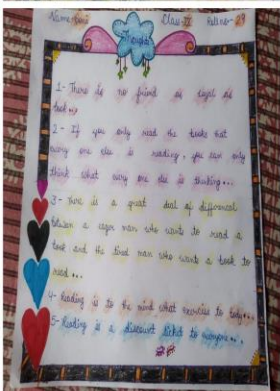 Class- Roll no- 29
Thought
1- There is no friend as loyal as
book...
2- If you only read the books that
every one else is reading, you can only
think what every one else is thinking...
3- There is a great deal of different
between a eager man who wants to read a
book and the tired man who wants a book to
read...
4- Reading is to the mind what exercise to body...
5- Reading is a discount ticket to everyone...